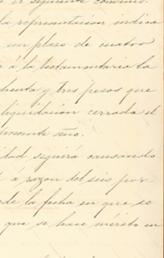 el siguiente convenio.
la representacion indica
un plazo de cuatro
á la testamentaria la
chenta y tres pesos que
liquidacion cerrada el
presente año.
idad seguirá causando
á razon del seis por
de la fecha en que se
que se hace mérito en